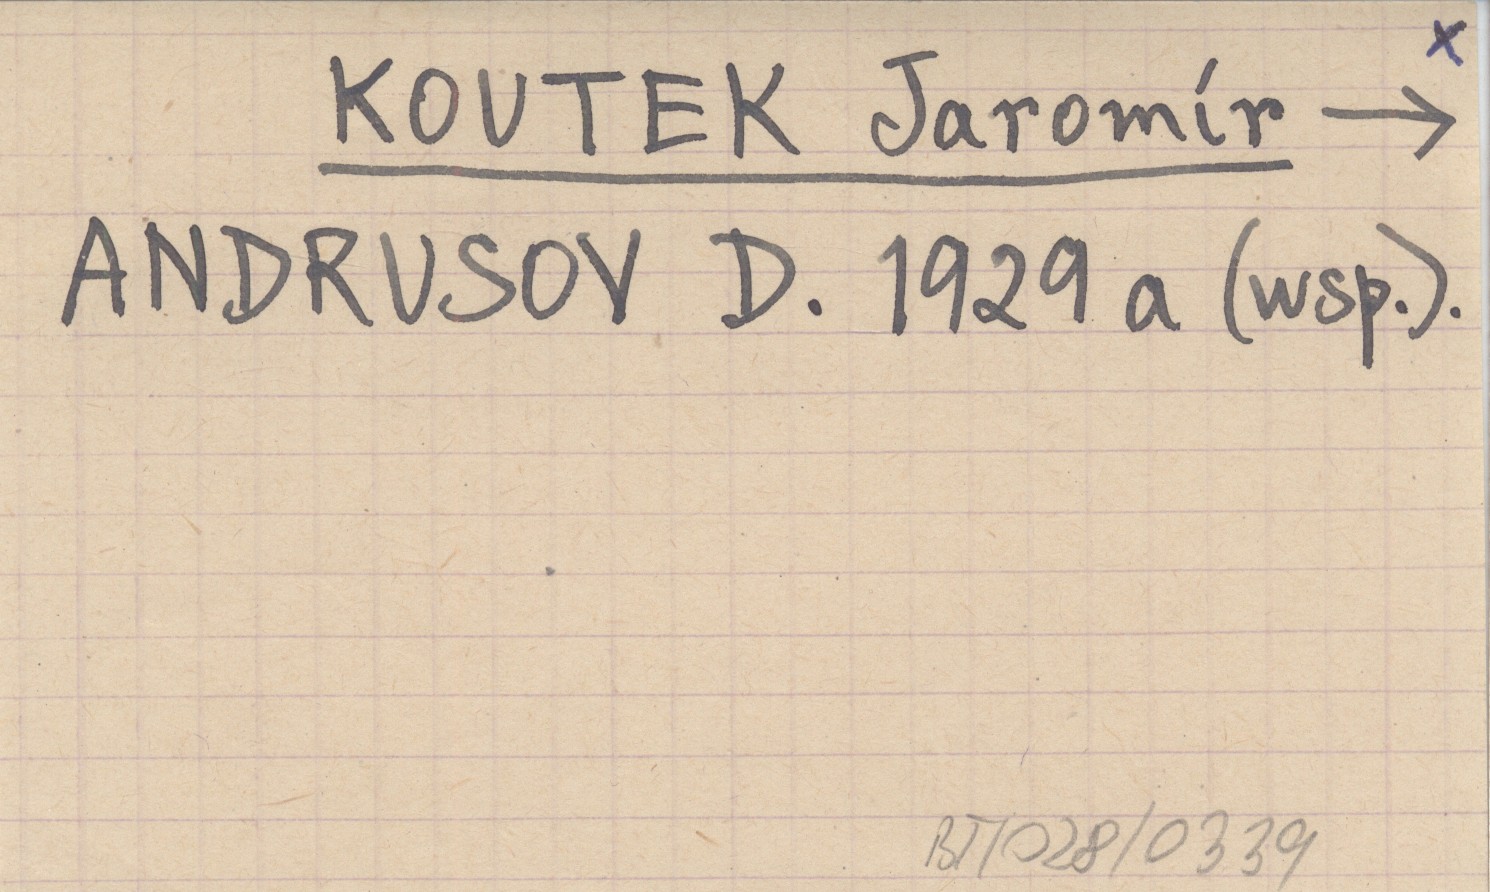 x
KOUTEK Jaromír →
ANDRUSOV D. 1929 a (wsp.).
BT/028/0339